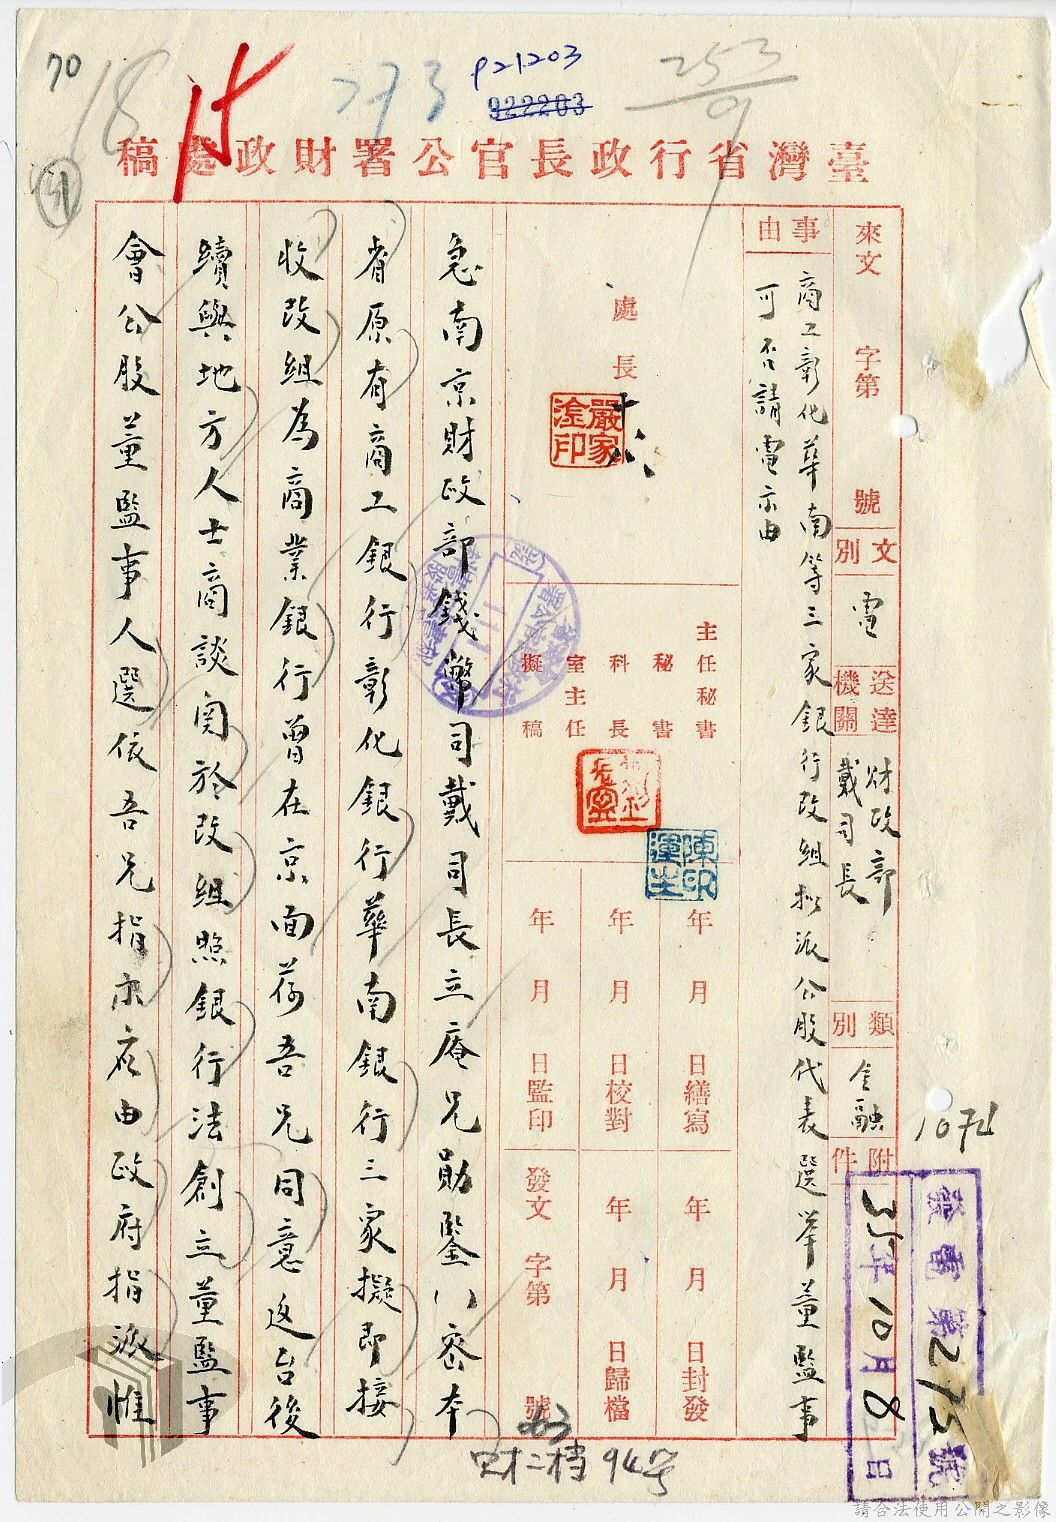 70
P21203
922203
253
9
臺灣省行政長官公署財政處稿
來文 字第 號
文別 電
送達機關 財政部戴司長
類別 金融
附件
事由
商工彰化華南等三家銀行改組擬派公股代表選举董監事
可否請電示由
處長
嚴家淦印
主任秘書
秘書
科長
室主任
擬稿
陳印運生
年 月 日繕寫
年 月 日校對
年 月 日監印
年 月 日封發
年 月 日歸檔
發文 字第 號
急南京財政部錢幣司戴司長立庵兄勛鑒八密本
省原有商工銀行彰化銀行華南銀行三家擬即接
收改組為商業銀行曾在京面荷吾兄同意返台後
續與地方人士商談関於改組照銀行法創立董監事
會公股董監事人選依吾兄指示应由政府指派惟
發電第275號
35年10月8日
1074
财二档94号
請合法使用公開之影像